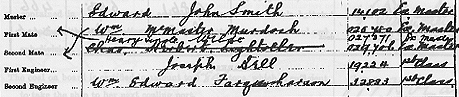 Master ... Edward John Smith 14102 Ex. Master
First Mate ... Wm McMaster Murdoch 025450 Ex. Master
Henry Tingle Wilde 027371 Ex Master
Second Mate ... Chas. Herbert Lightoller 029706 Ex. Master
First Engineer ... Joseph Bell 19224 1st Class
Second Engineer ... Wm. Edward Farquharson 32883 1st Class